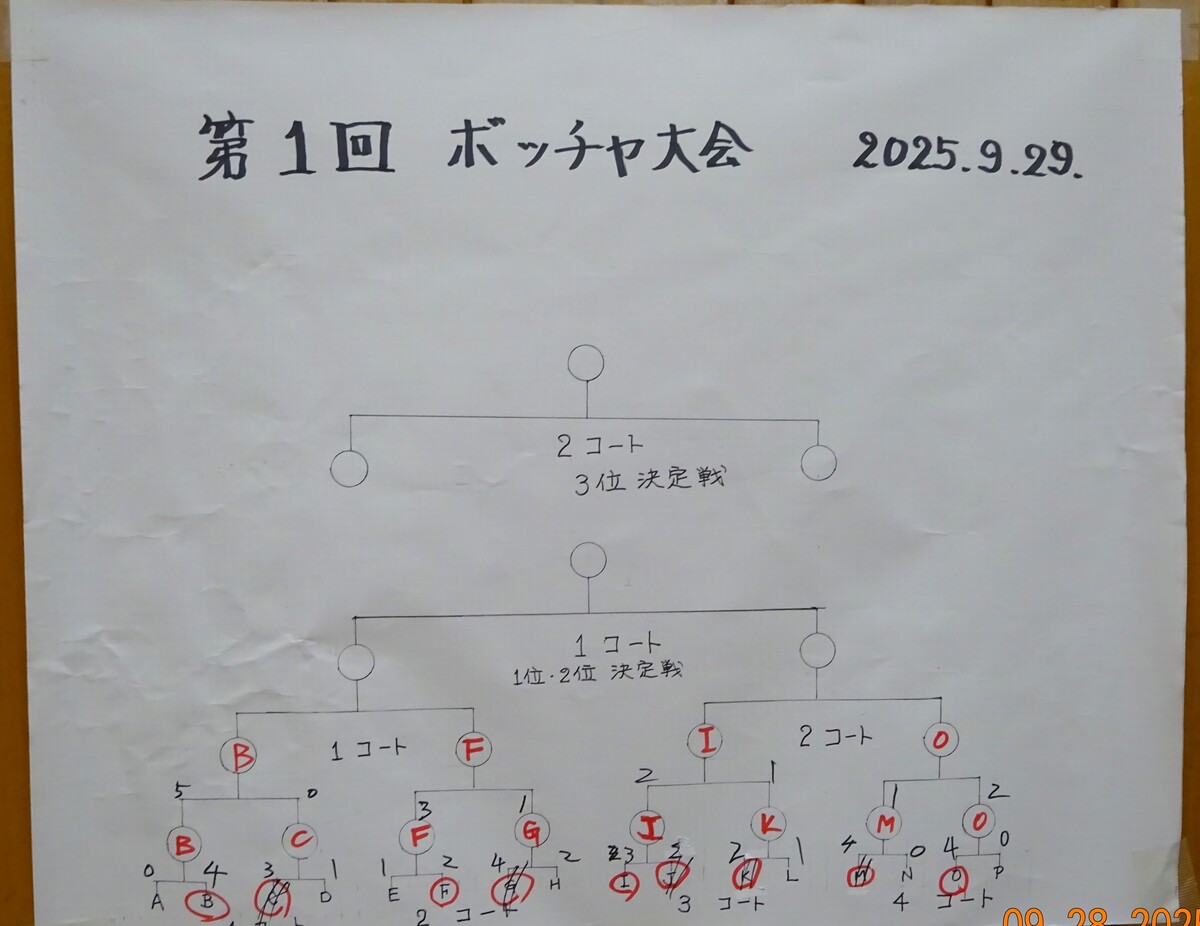 第1回 ボッチャ大会 2025.9.29.
2 コート
3位 決定戦
1 コート
1位・2位 決定戦
B 1 コート F I 2 コート O
5 0 3 1 2 1 1 2
B C F G I K M O
0 4 3 1 1 2 4 2 3 2 1 4 0 4 0
A B D E F H I K L M N O P
2 コート 3 コート 4 コート
09 28 2025